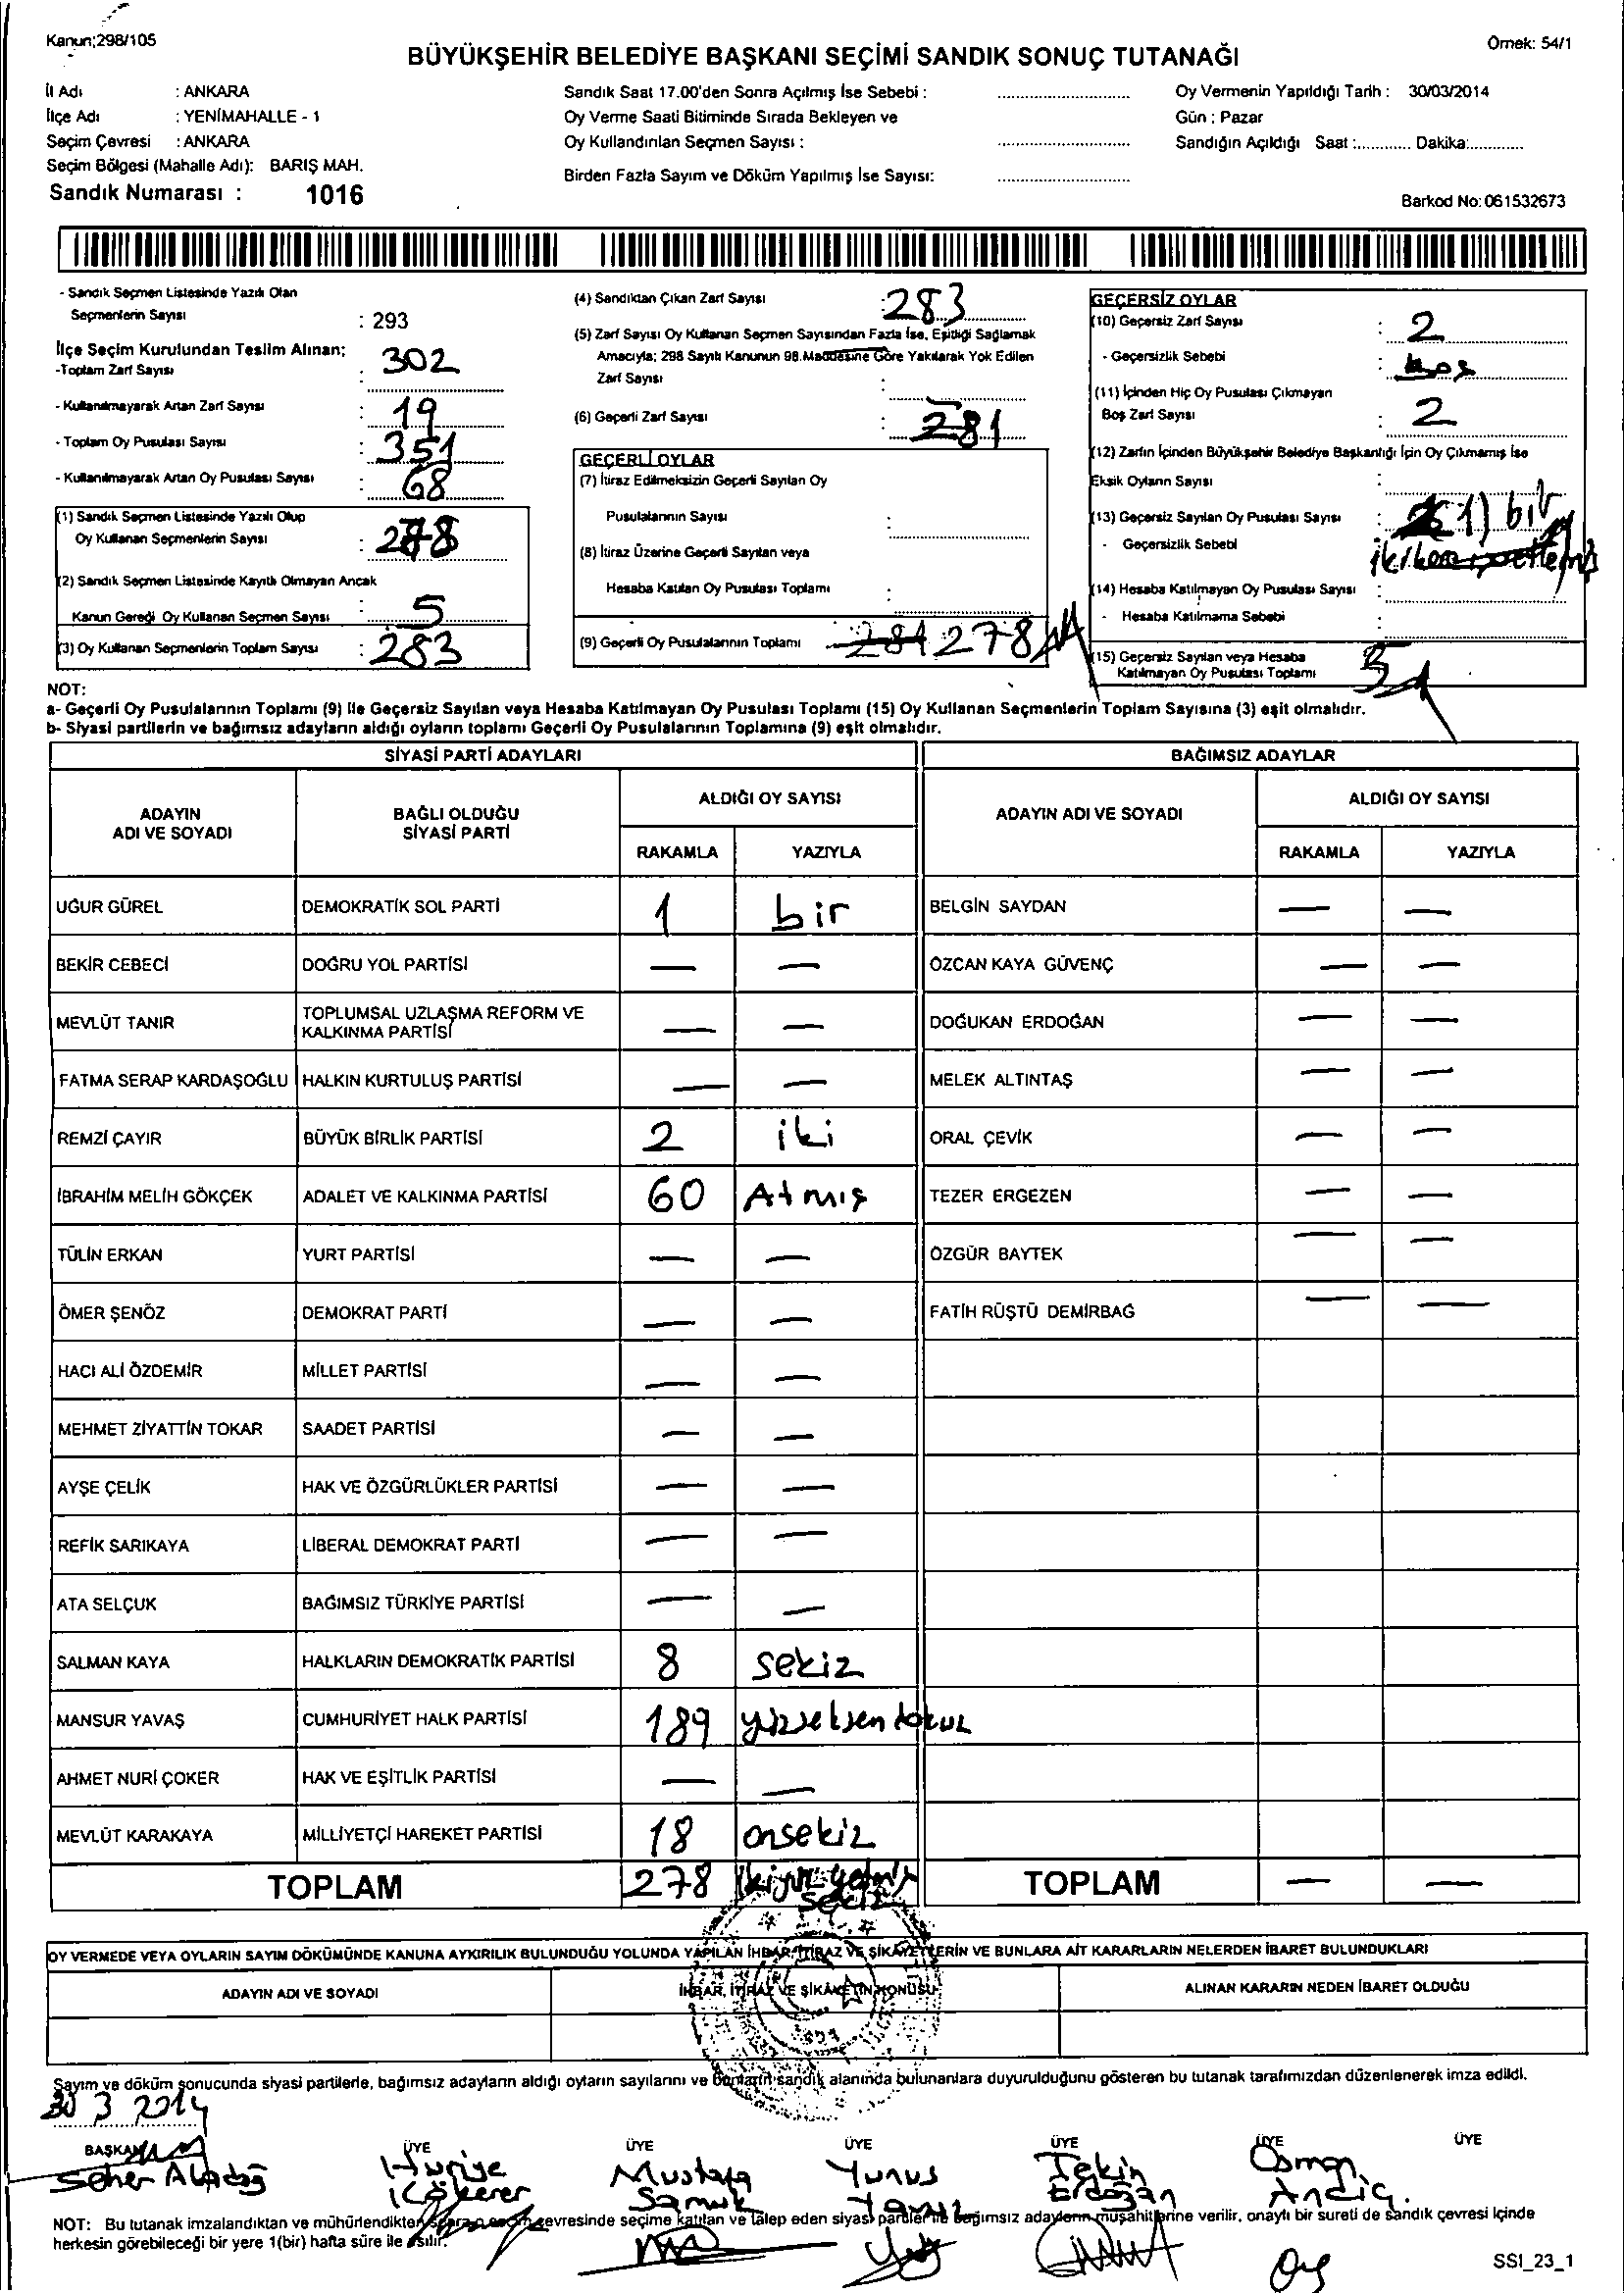 Kanun;298/105
Örnek: 54/1
BÜYÜKŞEHİR BELEDİYE BAŞKANI SEÇİMİ SANDIK SONUÇ TUTANAĞI
İl Adı : ANKARA
İlçe Adı : YENİMAHALLE - 1
Seçim Çevresi : ANKARA
Seçim Bölgesi (Mahalle Adı): BARIŞ MAH.
Sandık Numarası : 1016
Sandık Saat 17.00'den Sonra Açılmış İse Sebebi :
Oy Verme Saati Bitiminde Sırada Bekleyen ve
Oy Kullandırılan Seçmen Sayısı :
Birden Fazla Sayım ve Döküm Yapılmış İse Sayısı:
Oy Vermenin Yapıldığı Tarih : 30/03/2014
Gün : Pazar
Sandığın Açıldığı Saat :............ Dakika:............
Barkod No: 061532673
- Sandık Seçmen Listesinde Yazılı Olan
Seçmenlerin Sayısı : 293
İlçe Seçim Kurulundan Teslim Alınan;
-Toplam Zarf Sayısı : 302
- Kullanılmayarak Artan Zarf Sayısı : 19
- Toplam Oy Pusulası Sayısı : 351
- Kullanılmayarak Artan Oy Pusulası Sayısı : 68
(1) Sandık Seçmen Listesinde Yazılı Olup
Oy Kullanan Seçmenlerin Sayısı : 278
(2) Sandık Seçmen Listesinde Kayıtlı Olmayan Ancak
Kanun Gereği Oy Kullanan Seçmen Sayısı : 5
(3) Oy Kullanan Seçmenlerin Toplam Sayısı : 283
(4) Sandıktan Çıkan Zarf Sayısı : 283
(5) Zarf Sayısı Oy Kullanan Seçmen Sayısından Fazla İse, Eşitliği Sağlamak
Amacıyla; 298 Sayılı Kanunun 98.Maddesine Göre Yakılarak Yok Edilen
Zarf Sayısı :
(6) Geçerli Zarf Sayısı : 281
GEÇERLİ OYLAR
(7) İtiraz Edilmeksizin Geçerli Sayılan Oy
Pusulalarının Sayısı :
(8) İtiraz Üzerine Geçerli Sayılan veya
Hesaba Katılan Oy Pusulası Toplamı :
(9) Geçerli Oy Pusulalarının Toplamı : 281 278
GEÇERSİZ OYLAR
(10) Geçersiz Zarf Sayısı : 2
- Geçersizlik Sebebi : Boş
(11) İçinden Hiç Oy Pusulası Çıkmayan
Boş Zarf Sayısı : 2
(12) Zarfın İçinden Büyükşehir Belediye Başkanlığı İçin Oy Çıkmamış İse
Eksik Oyların Sayısı :
(13) Geçersiz Sayılan Oy Pusulası Sayısı : 1) bir
- Geçersizlik Sebebi
(14) Hesaba Katılmayan Oy Pusulası Sayısı :
- Hesaba Katılmama Sebebi
(15) Geçersiz Sayılan veya Hesaba
Katılmayan Oy Pusulası Toplamı : 5
NOT:
a- Geçerli Oy Pusulalarının Toplamı (9) İle Geçersiz Sayılan veya Hesaba Katılmayan Oy Pusulası Toplamı (15) Oy Kullanan Seçmenlerin Toplam Sayısına (3) eşit olmalıdır.
b- Siyasi partilerin ve bağımsız adayların aldığı oyların toplamı Geçerli Oy Pusulalarının Toplamına (9) eşit olmalıdır.
SİYASİ PARTİ ADAYLARI BAĞIMSIZ ADAYLAR
ADAYIN ADI VE SOYADI BAĞLI OLDUĞU SİYASİ PARTİ ALDIĞI OY SAYISI RAKAMLA YAZIYLA ADAYIN ADI VE SOYADI ALDIĞI OY SAYISI RAKAMLA YAZIYLA
UĞUR GÜREL DEMOKRATİK SOL PARTİ 1 bir BELGİN SAYDAN — —
BEKİR CEBECİ DOĞRU YOL PARTİSİ — — ÖZCAN KAYA GÜVENÇ — —
MEVLÜT TANIR TOPLUMSAL UZLAŞMA REFORM VE KALKINMA PARTİSİ — — DOĞUKAN ERDOĞAN — —
FATMA SERAP KARDAŞOĞLU HALKIN KURTULUŞ PARTİSİ — — MELEK ALTINTAŞ — —
REMZİ ÇAYIR BÜYÜK BİRLİK PARTİSİ 2 iki ORAL ÇEVİK — —
İBRAHİM MELİH GÖKÇEK ADALET VE KALKINMA PARTİSİ 60 Atmış TEZER ERGEZEN — —
TÜLİN ERKAN YURT PARTİSİ — — ÖZGÜR BAYTEK — —
ÖMER ŞENÖZ DEMOKRAT PARTİ — — FATİH RÜŞTÜ DEMİRBAĞ — —
HACI ALİ ÖZDEMİR MİLLET PARTİSİ — —
MEHMET ZİYATTİN TOKAR SAADET PARTİSİ — —
AYŞE ÇELİK HAK VE ÖZGÜRLÜKLER PARTİSİ — —
REFİK SARIKAYA LİBERAL DEMOKRAT PARTİ — —
ATA SELÇUK BAĞIMSIZ TÜRKİYE PARTİSİ — —
SALMAN KAYA HALKLARIN DEMOKRATİK PARTİSİ 8 sekiz
MANSUR YAVAŞ CUMHURİYET HALK PARTİSİ 189 yüzseksen dokuz
AHMET NURİ ÇOKER HAK VE EŞİTLİK PARTİSİ — —
MEVLÜT KARAKAYA MİLLİYETÇİ HAREKET PARTİSİ 18 onsekiz
TOPLAM 278 ikiyüz yetmiş sekiz TOPLAM — —
OY VERMEDE VEYA OYLARIN SAYIM DÖKÜMÜNDE KANUNA AYKIRILIK BULUNDUĞU YOLUNDA YAPILAN İHBAR, İTİRAZ VE ŞİKAYETLERİN VE BUNLARA AİT KARARLARIN NELERDEN İBARET BULUNDUKLARI
ADAYIN ADI VE SOYADI İHBAR, İTİRAZ VE ŞİKAYETİN KONUSU ALINAN KARARIN NEDEN İBARET OLDUĞU
Sayım ve döküm sonucunda siyasi partilerle, bağımsız adayların aldığı oyların sayılarını ve bunların sandık alanında bulunanlara duyurulduğunu gösteren bu tutanak tarafımızdan düzenlenerek imza edildi.
30 3 2014
BAŞKAN ÜYE ÜYE ÜYE ÜYE ÜYE ÜYE
Seher Huriye Mustafa Yunus Tekin Osman
Kökerer Samuk Yavuz Erdoğan
NOT: Bu tutanak imzalandıktan ve mühürlendikten sonra o seçim çevresinde seçime katılan ve talep eden siyasi partiler ile bağımsız adayların müşahitlerine verilir, onaylı bir sureti de sandık çevresi içinde
herkesin görebileceği bir yere 1(bir) hafta süre ile asılır.
SSI_23_1